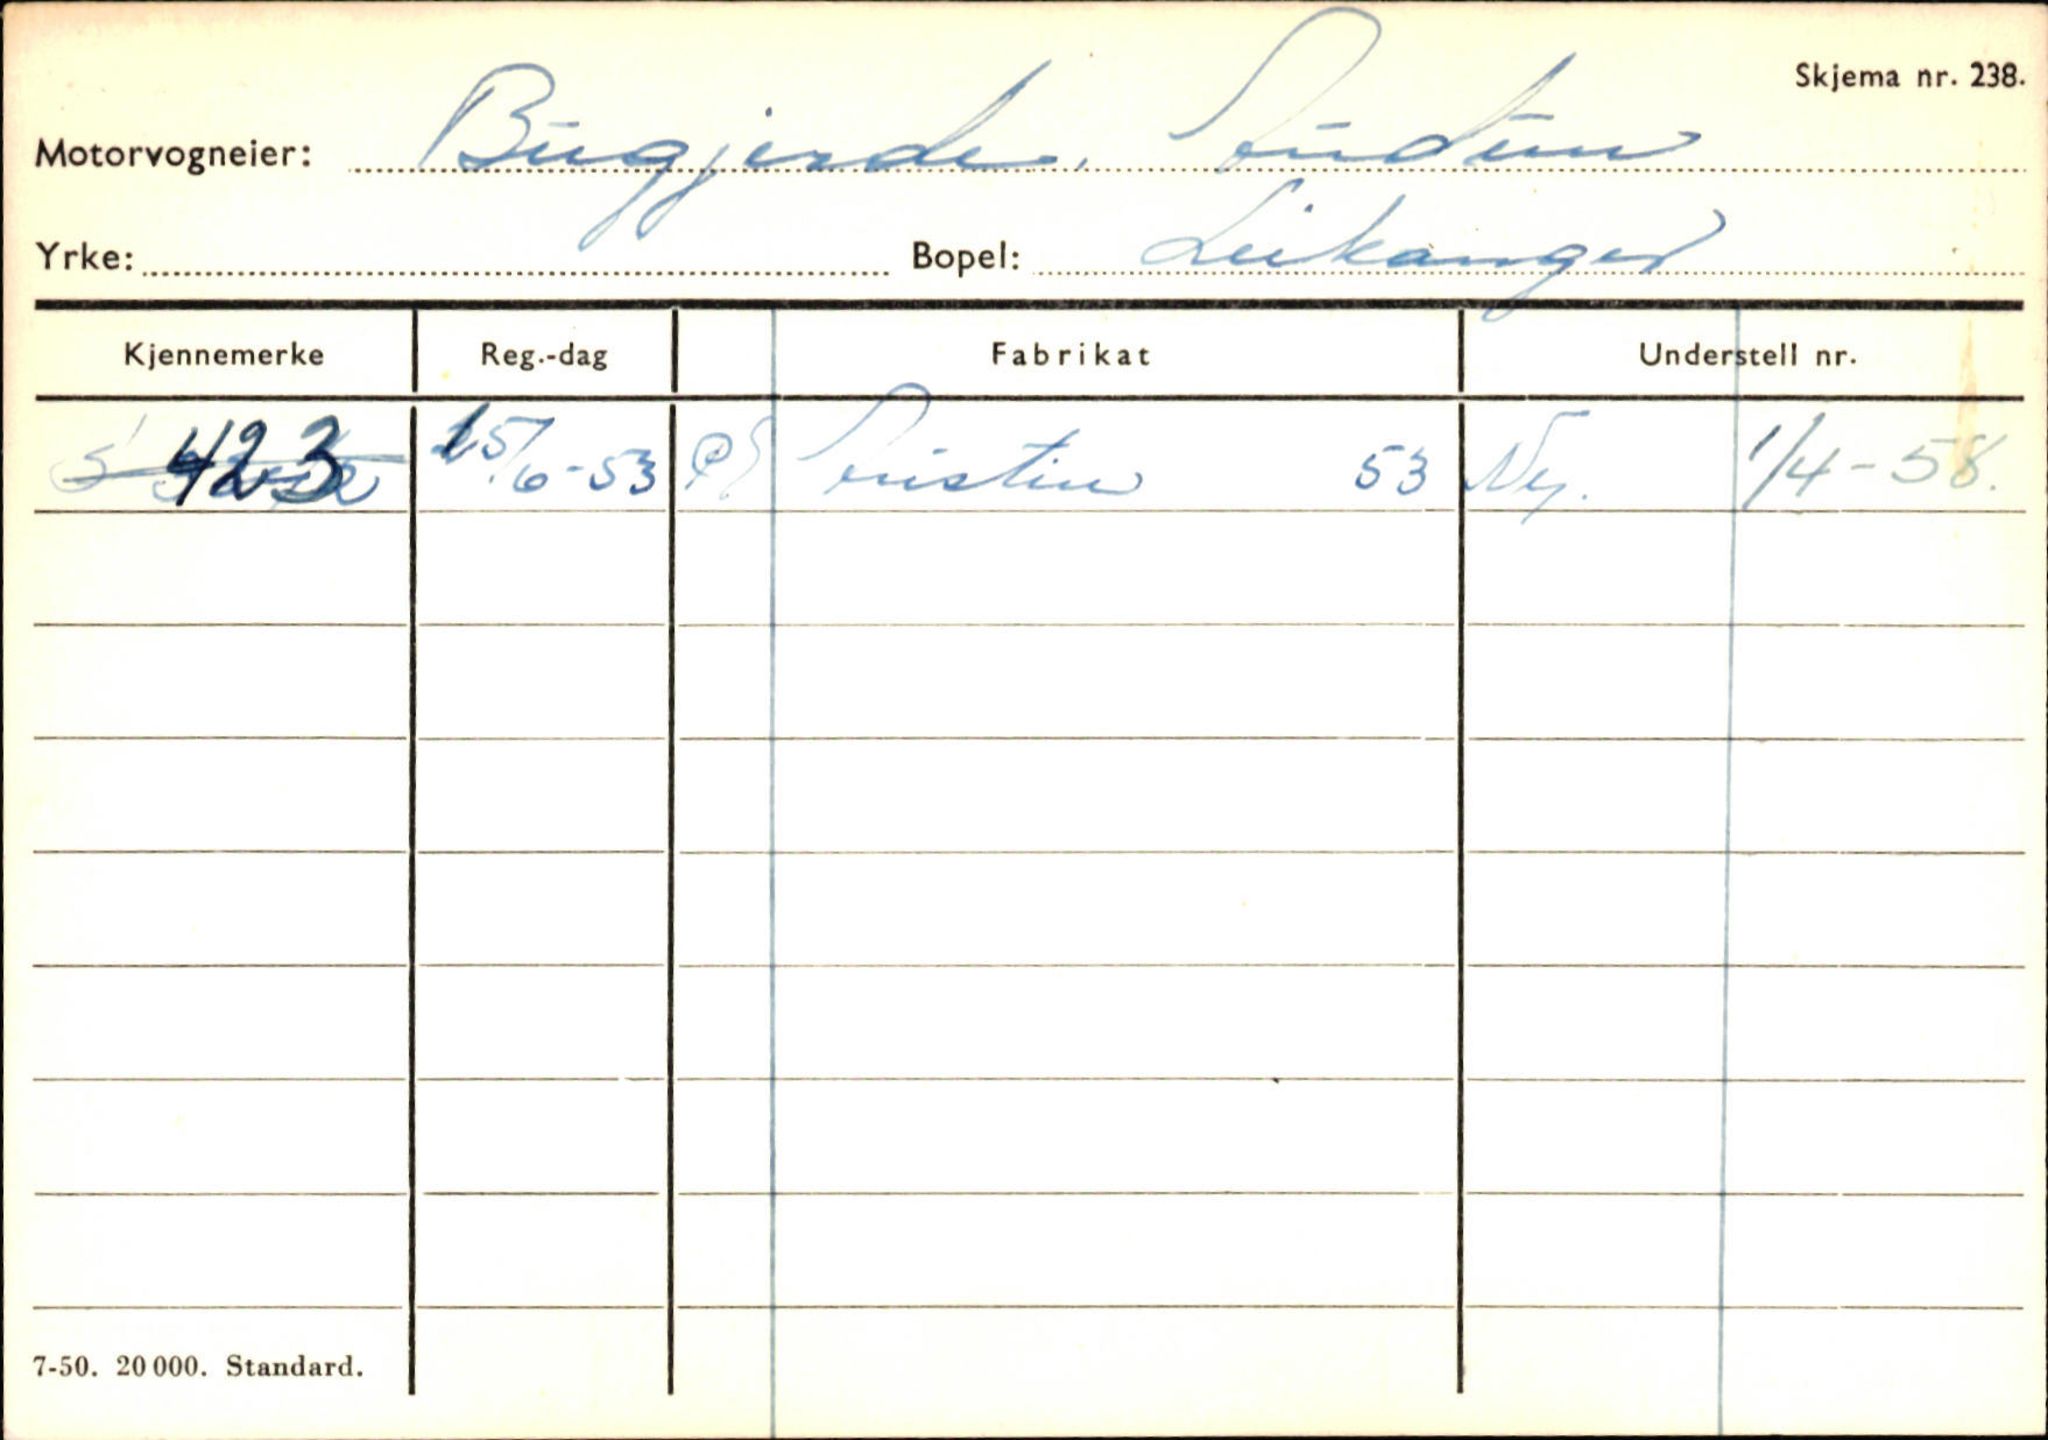 Skjema nr. 238.
Motorvogneier: Bugjerde,
Yrke: Bopel: Leikanger
Kjennemerke Reg.-dag Fabrikat Understell nr.
423 15/6-53 Austin 53 Ny. 1/4-58.
7-50. 20 000. Standard.